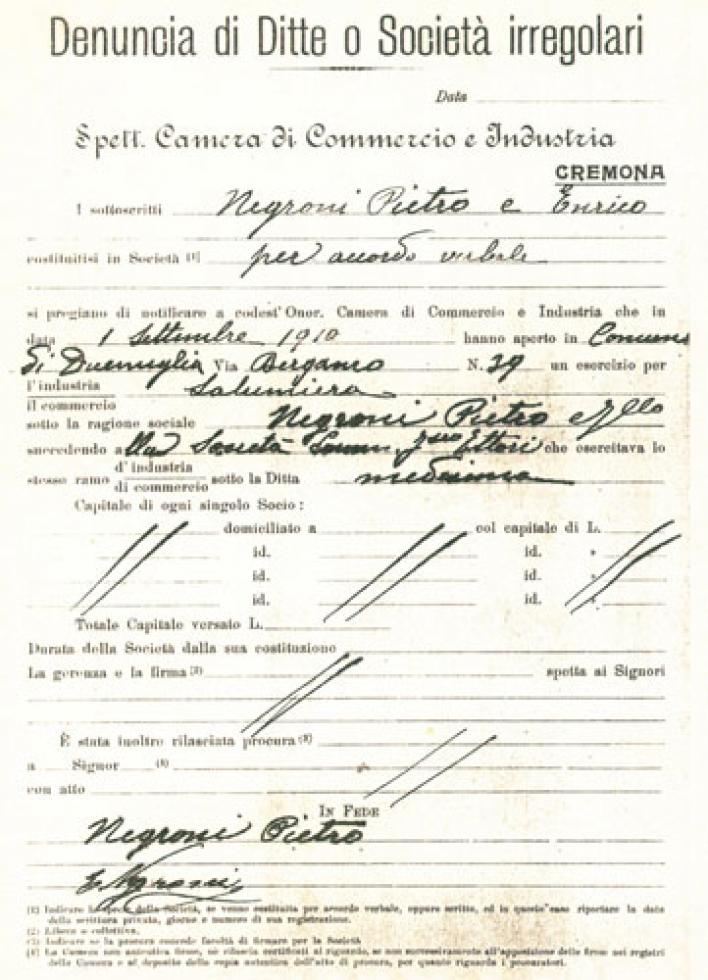 Denuncia di Ditte o Società irregolari
Data
Spett. Camera di Commercio e Industria
CREMONA
I sottoscritti Negroni Pietro e Enrico
costituitisi in Società (1) per accordo verbale
si pregiano di notificare a codest'Onor. Camera di Commercio e Industria che in
data 1 Settembre 1910 hanno aperto in Comune
di Duemiglia Via Bergamo N. 39 un esercizio per
l'industria Salumiera
il commercio
sotto la ragione sociale Negroni Pietro e
succedendo alla Società Ettori che esercitava lo
stesso ramo d'industria di commercio sotto la Ditta medesima
Capitale di ogni singolo Socio:
domiciliato a col capitale di L.
id. id. "
id. id. "
id. id. "
Totale Capitale versato L.
Durata della Società dalla sua costituzione
La gerenza e la firma (2) spetta ai Signori
È stata inoltre rilasciata procura (3)
a Signor (4)
con atto
IN FEDE
Negroni Pietro
E Negroni
(1) Indicare la specie della Società, se venne costituita per accordo verbale, oppure scritto, ed in questo caso riportare la data
della scrittura privata, giorno e numero di sua registrazione.
(2) Libera o collettiva.
(3) Indicare se la procura concede facoltà di firmare per la Società
(4) La Camera non autentica firme, nè rilascia certificati al riguardo, se non successivamente all'apposizione delle firme nei registri
della Camera e al deposito della copia autentica dell'atto di procura, per quanto riguarda i procuratori.